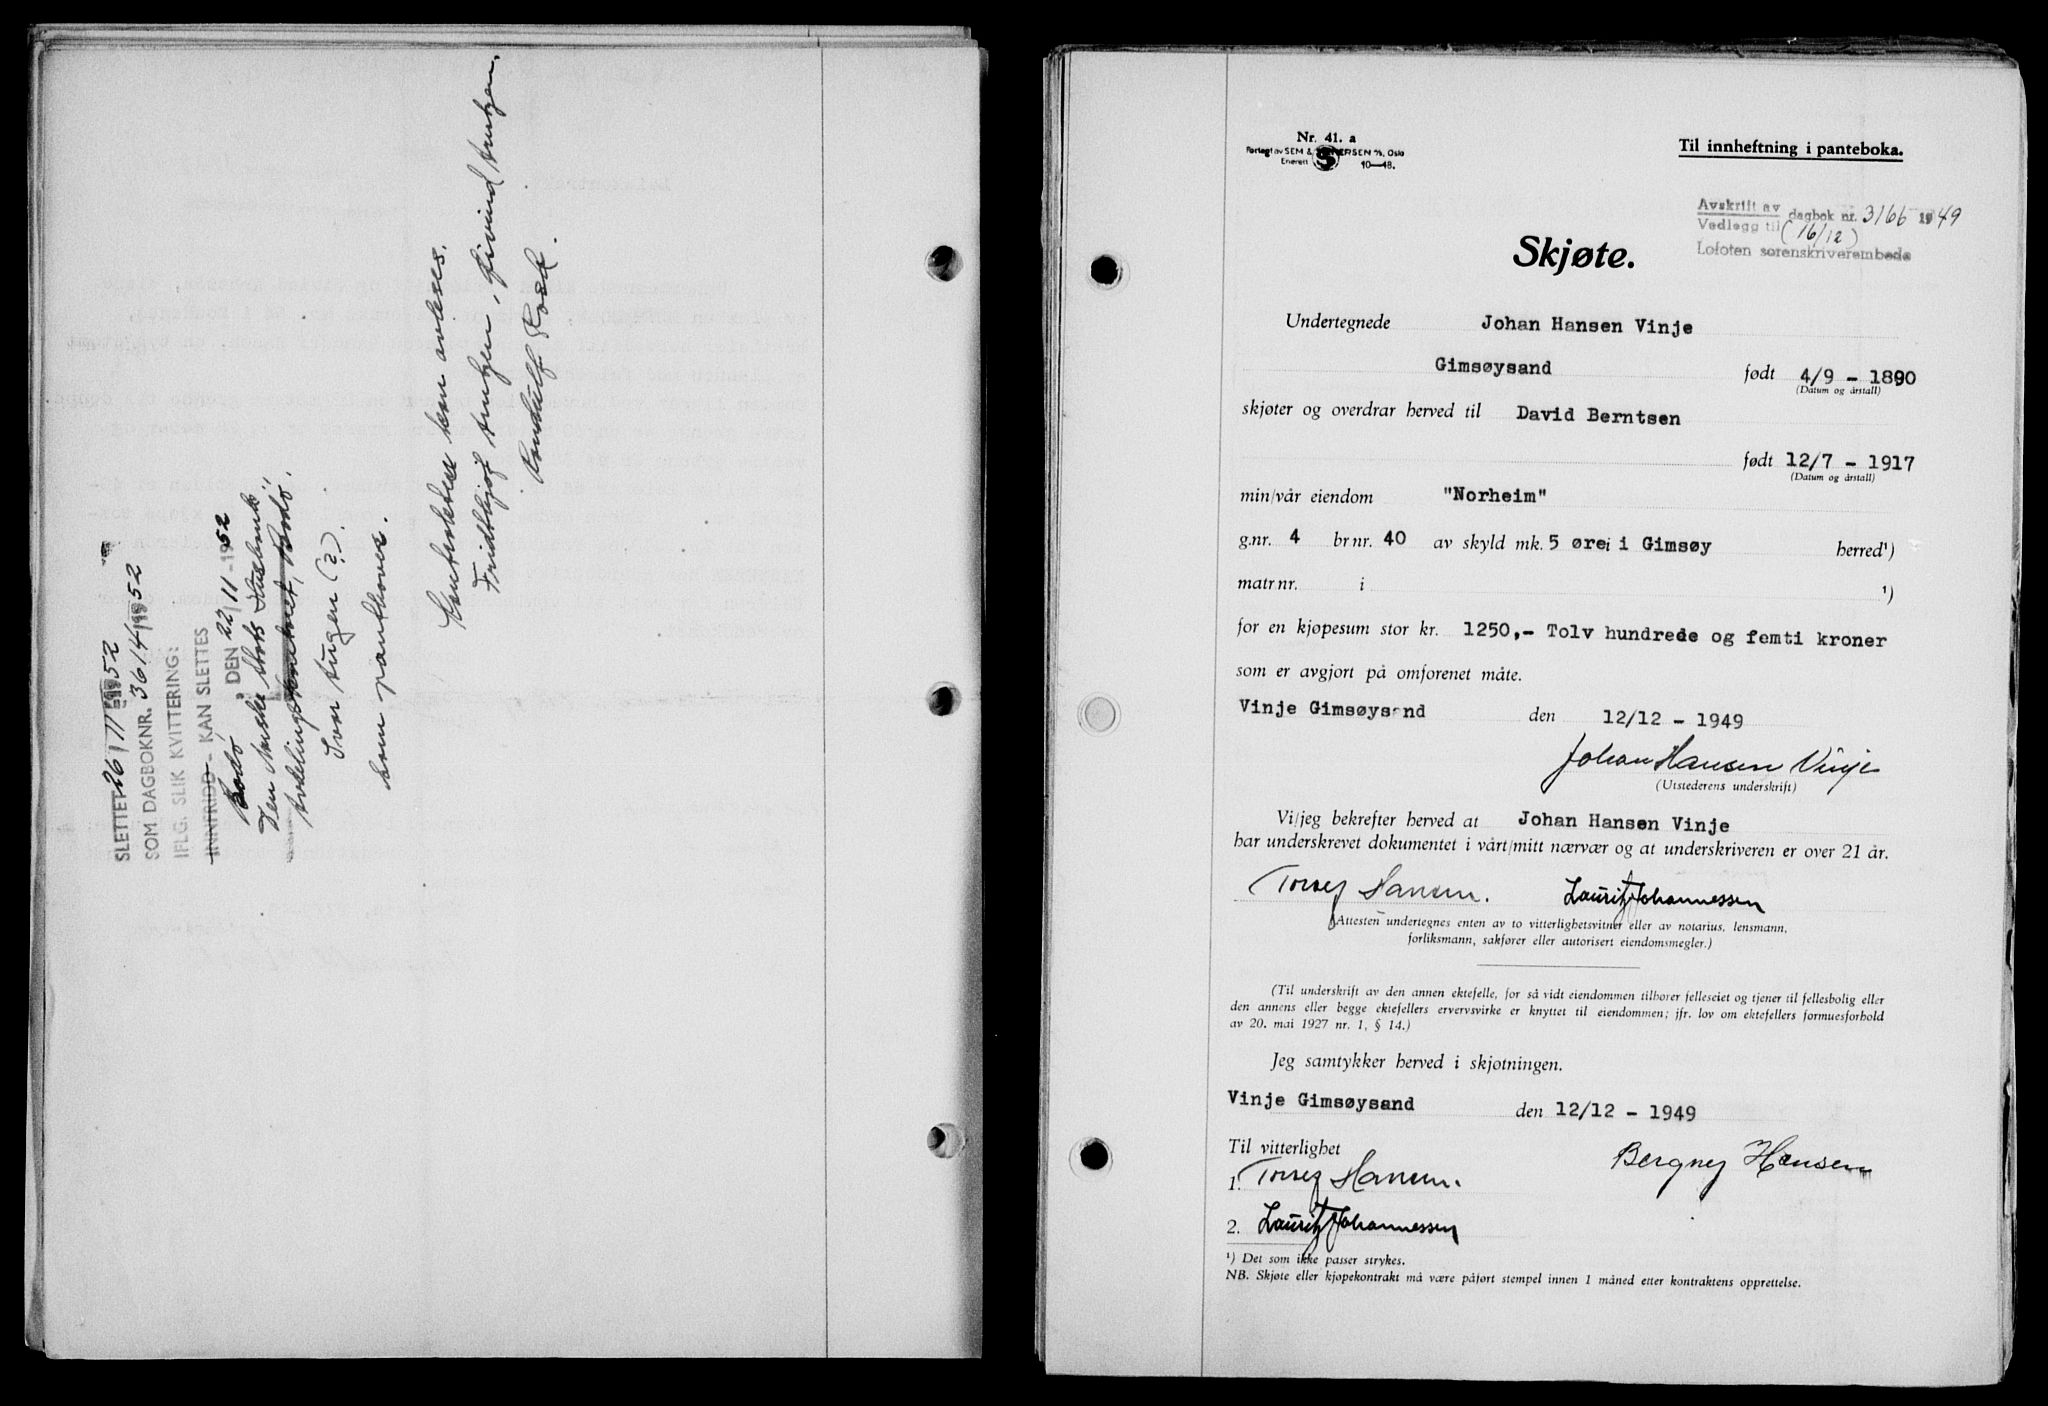 SLETTET 26/11 1952
SOM DAGBOKNR. 3614/1952
IFLG. SLIK KVITTERING:
INNFRIDD - KAN SLETTES
Bodö, DEN 22/11-1952
Den Norske Stats Husbank
Avdelingskontoret, Bodö.
Ivar Augen (?)
som panthaver.
Kontrakten kan avleses.
Fridthjof
Nr. 41. a
Forlagt av SEM & STENERSEN A/S, Oslo
Enerett S 10—48.
Til innheftning i panteboka.
Avskrift av
Vedlegg til dagbok nr. 3166 1949
(16/12)
Lofoten sorenskriverembede
Skjøte.
Undertegnede Johan Hansen Vinje
Gimsøysand født 4/9 - 1890
(Datum og årstall)
skjøter og overdrar herved til David Berntsen
født 12/7 - 1917
(Datum og årstall)
min/vår eiendom "Norheim"
g.nr. 4 br.nr. 40 av skyld mk. 5 øre i Gimsøy herred¹)
matr.nr. i ¹)
for en kjøpesum stor kr. 1250,- Tolv hundrede og femti kroner
som er avgjort på omforenet måte.
Vinje Gimsøysand den 12/12 - 1949
Johan Hansen Vinje
(Utstederens underskrift)
Vi/jeg bekrefter herved at Johan Hansen Vinje
har underskrevet dokumentet i vårt/mitt nærvær og at underskriveren er over 21 år.
Torleif Hansen. Lauritz Johannessen
(Attesten undertegnes enten av to vitterlighetsvitner eller av notarius, lensmann,
forliksmann, sakfører eller autorisert eiendomsmegler.)
(Til underskrift av den annen ektefelle, for så vidt eiendommen tilhører felleseiet og tjener til fellesbolig eller
den annens eller begge ektefellers ervervsvirke er knyttet til eiendommen; jfr. lov om ektefellers formuesforhold
av 20. mai 1927 nr. 1, § 14.)
Jeg samtykker herved i skjøtningen.
Vinje Gimsøysand den 12/12 - 1949
Til vitterlighet
Bergney Hansen
1. Torleif Hansen.
2. Lauritz Johannessen
¹) Det som ikke passer strykes.
NB. Skjøte eller kjøpekontrakt må være påført stempel innen 1 måned etter kontraktens opprettelse.